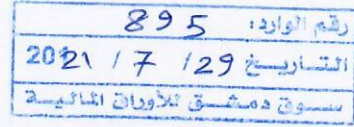 رقم الوارد: 895
التاريخ 29 / 7 / 2021
سوق دمشق للأوراق المالية